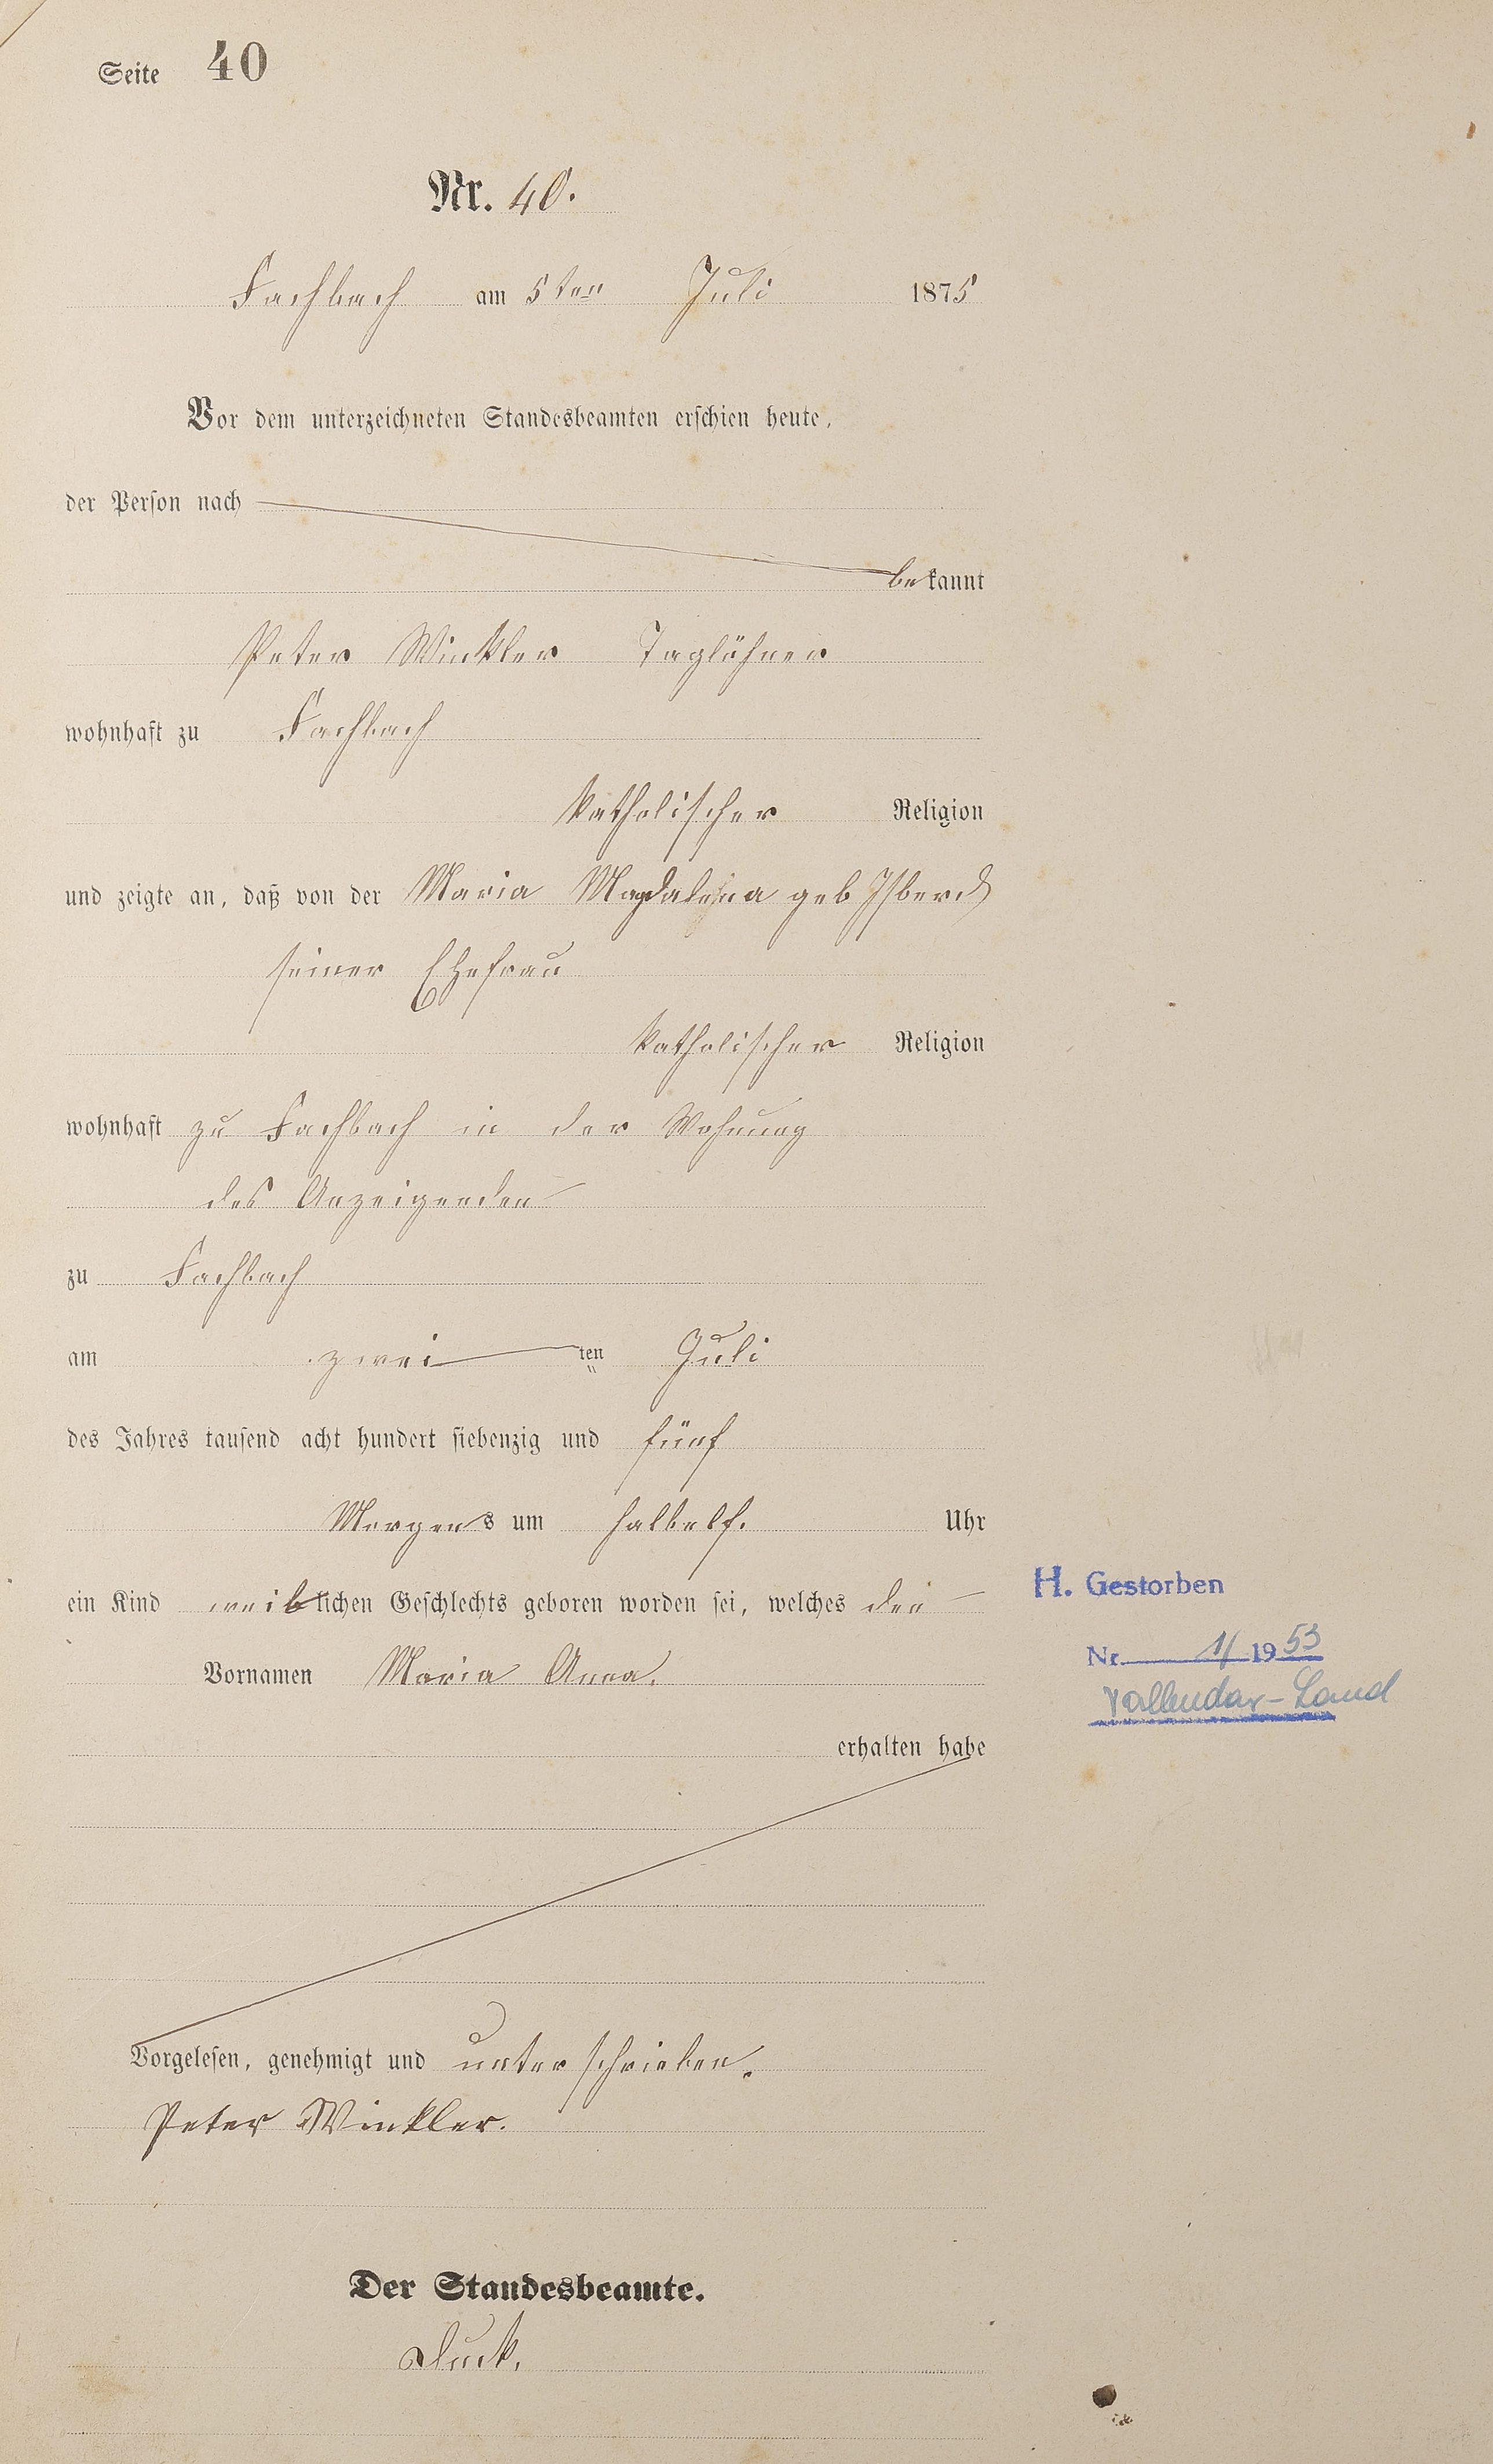 Seite 40
Nr. 40.
Fachbach am 5ten Juli 1875
Vor dem unterzeichneten Standesbeamten erschien heute,
der Person nach
bekannt
Peter Winkler Taglöhner
wohnhaft zu Fachbach
katholischer Religion
und zeigte an, daß von der Maria Magdalena geb
seiner Ehefrau
katholischer Religion
wohnhaft zu Fachbach in der Wohnung
des Anzeigenden
zu Fachbach
am zwei ten Juli
des Jahres tausend acht hundert siebenzig und fünf
Morgens um halbelf. Uhr
ein Kind weiblichen Geschlechts geboren worden sei, welches den
Vornamen Maria Anna.
erhalten habe
H. Gestorben
Nr. 1/1953
Vallendar-Land
Vorgelesen, genehmigt und unterschrieben.
Peter Winkler.
Der Standesbeamte.